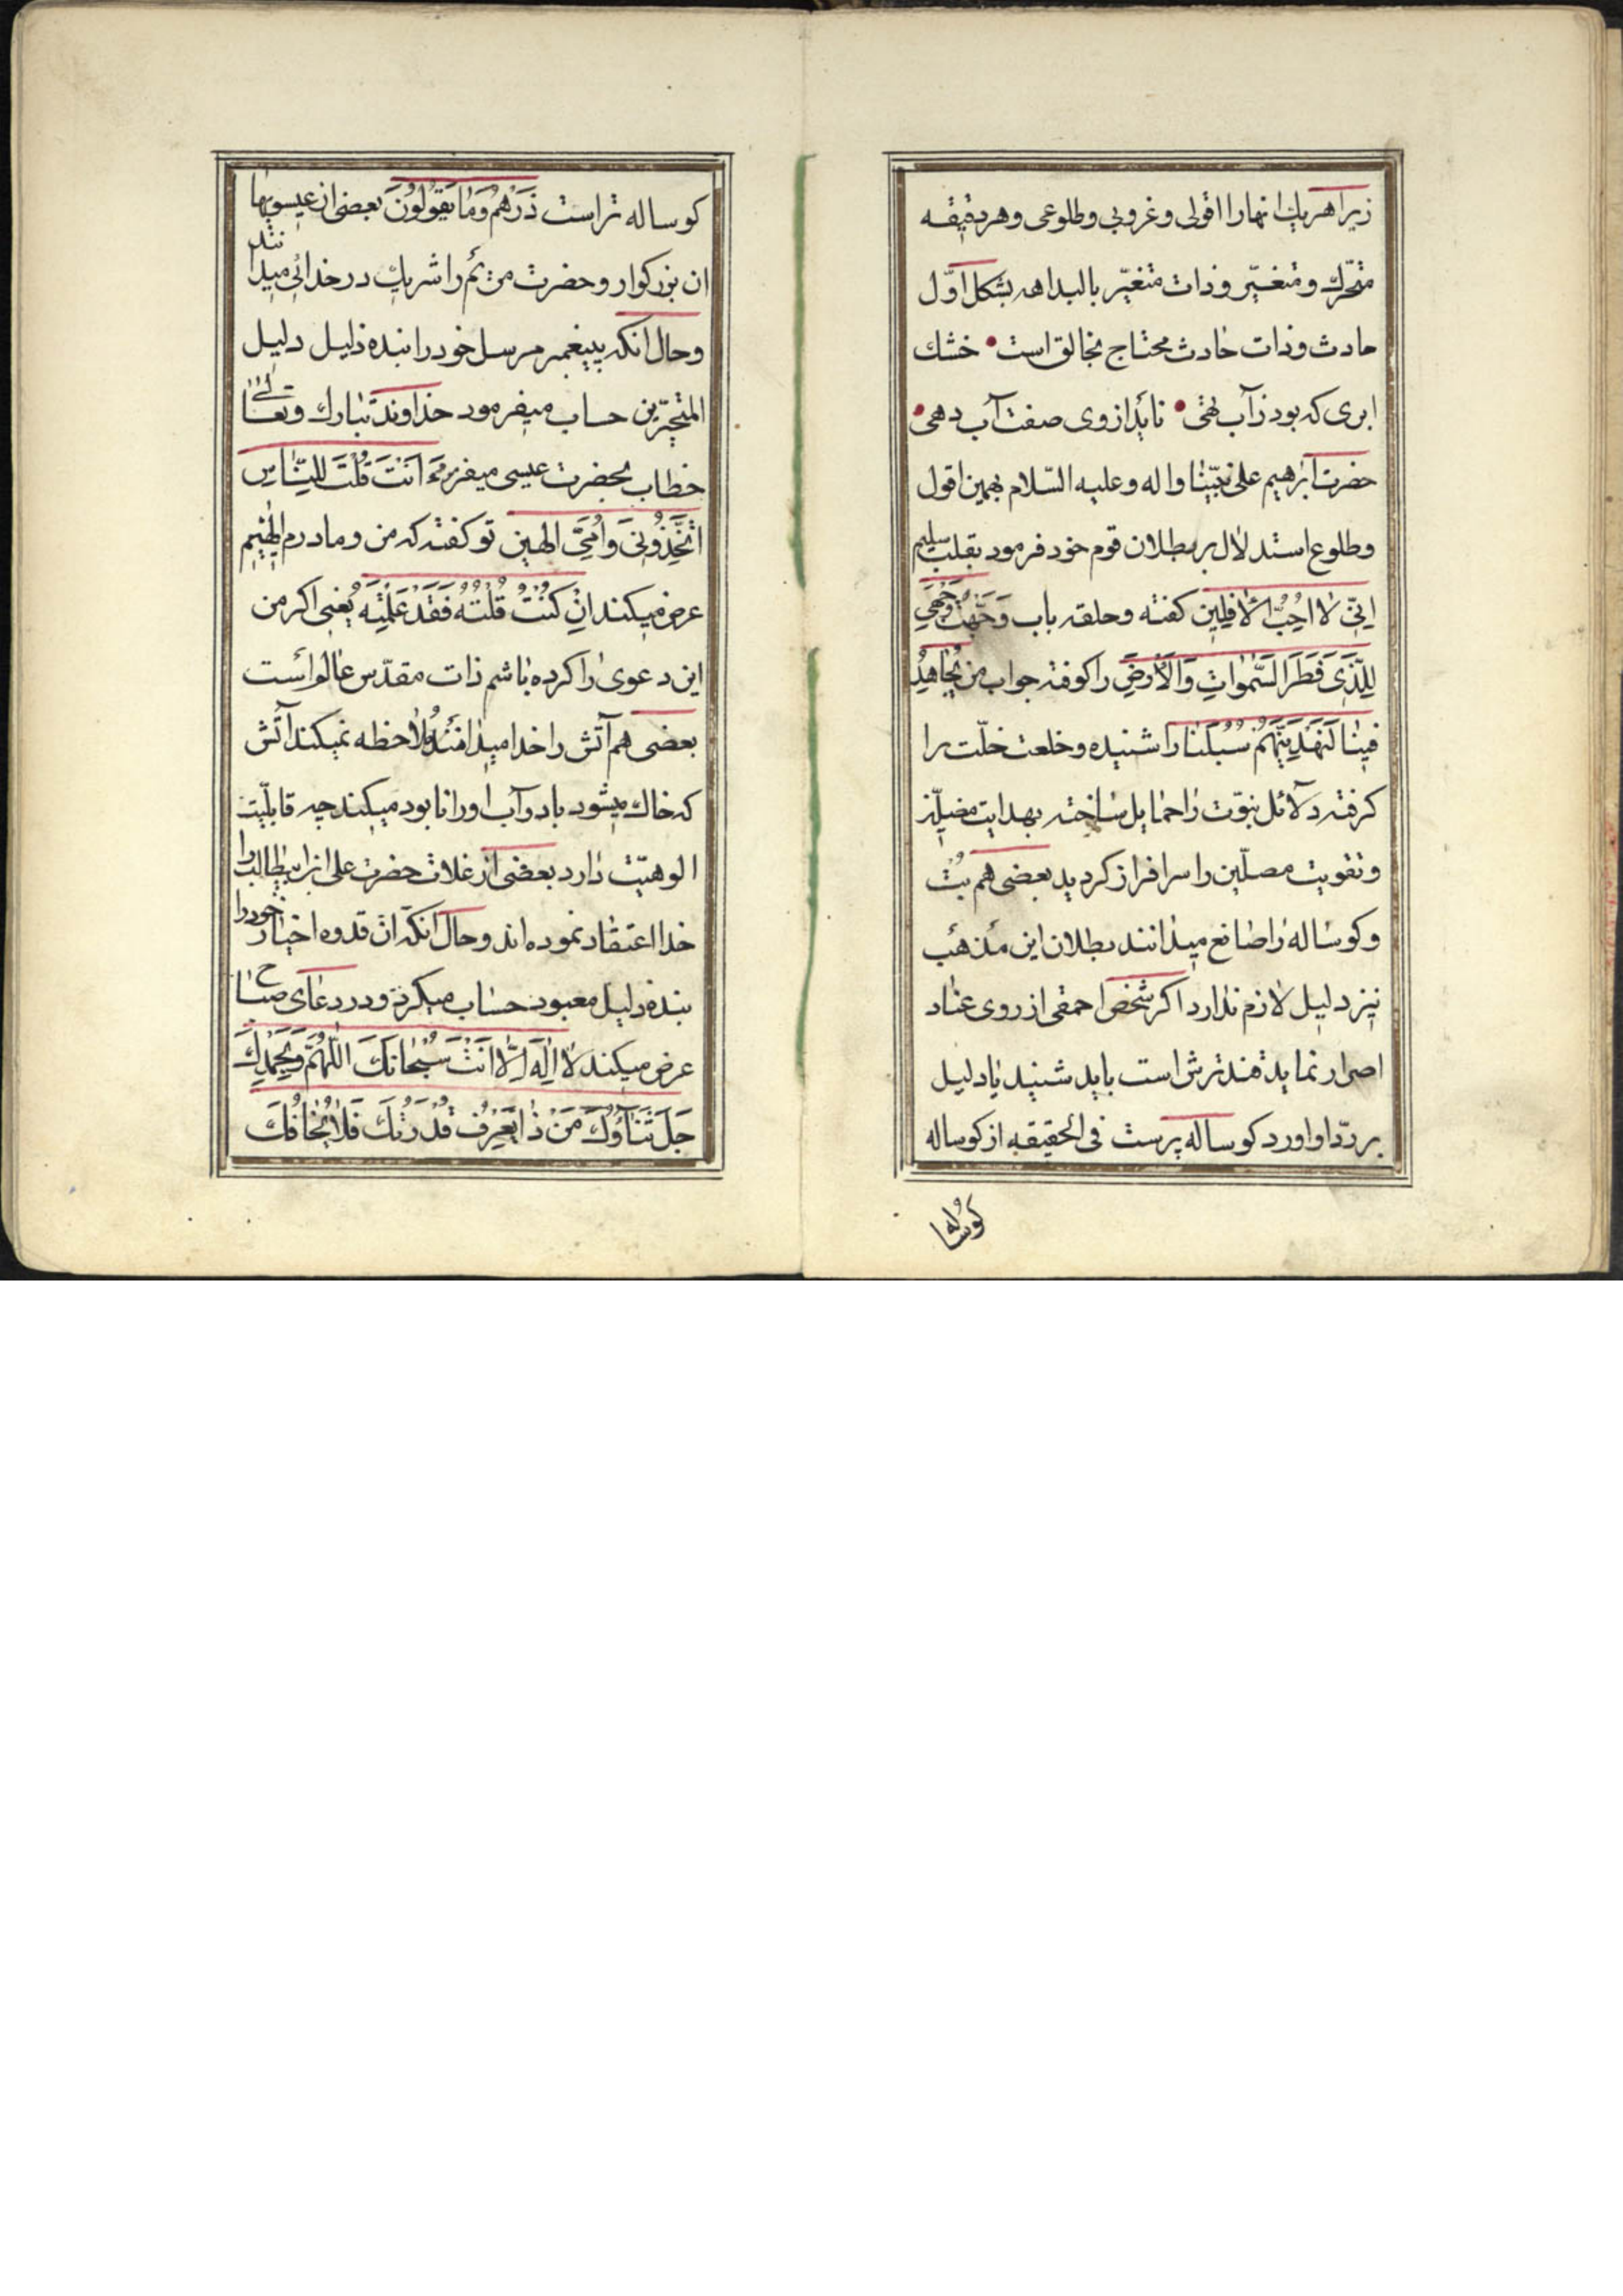 زیرا هر یك اینها را افولی و غروبی و طلوعی و هر دقیقه
متحرّك و متغیّر و ذات متغیّر بالبداهه بشكل اوّل
حادث و ذات حادث محتاج بخالق است • خشك
ابری كه بود ز آب تهی • ناید از وی صفت آب دهی •
حضرت ابرهیم علی نبیّنا و اله و علیه السّلام بهمین افول
و طلوع استدلال بر بطلان قوم خود فرمود بقلب سلیم
اِنّی لا اُحِبُّ الْاٰفِلین كفته و حلقه باب وَجَّهْتُ وَجْهِیَ
لِلَّذی فَطَرَ السَّمٰواتِ وَالْاَرْضَ را كوفته جواب من یُجاهِدُ
فینا لَنَهْدِیَنَّهُمْ سُبُلَنا را شنیده و خلعت خلّت را
كرفته دلائل نبوّت را حمایل ساخته بهدایت مضلّین
و تقویت مصلّین را سرافراز كردید بعضی هم بُت
و كوساله را صانع میدانند بطلان این مذهب
نیز دلیل لازم ندارد اكر شخص احمقی از روی عناد
اصرار نماید مند ترش است باید شنید یا دلیل
بر ردّ او اورد كوساله پرست فی الحقیقه از كوساله
كوساله
كوساله تر است ذَرْهُمْ وَمٰا یَقُولُونَ بعضی از عیسویها
ان بزركوار و حضرت مریم را شریك در خدائی میدانند
و حال انكه پیغمبر مرسل خود را بنده ذلیل دلیل
المتحیّرین حساب میفرمود خداوند تبارك و تعالی
خطاب بحضرت عیسی میفرماید ءَاَنْتَ قُلْتَ لِلنّٰاسِ
اتَّخِذُونی وَاُمِّیَ الٰهین تو كفته كه من و مادرم الٰهیم
عرض میكند اِنْ كُنْتُ قُلْتُهُ فَقَدْ عَلِمْتَهُ یعنی اكر من
این دعوی را كرده باشم ذات مقدّس عالم است
بعضی هم آتش را خدا میدانند ملاحظه نمیكند آتش
كه خاك میشود باد و آب او را نابود میكند چه قابلیّت
الوهیّت دارد بعضی از غلات حضرت علی ابن ابیطالب را
خدا اعتقاد نموده اند و حال انكه ان قدوه اخیار خود را
بنده دلیل معبود حساب میكرد و در دعای صباح
عرض میكند لا اِلٰهَ اِلّا اَنْتَ سُبْحانَكَ اللّٰهُمَّ وَبِحَمْدِكَ
جَلَّ ثَنٰاؤُكَ مَنْ ذٰا یَعْرِفُ قُدْرَتَكَ فَلٰا یَخٰافُكَ